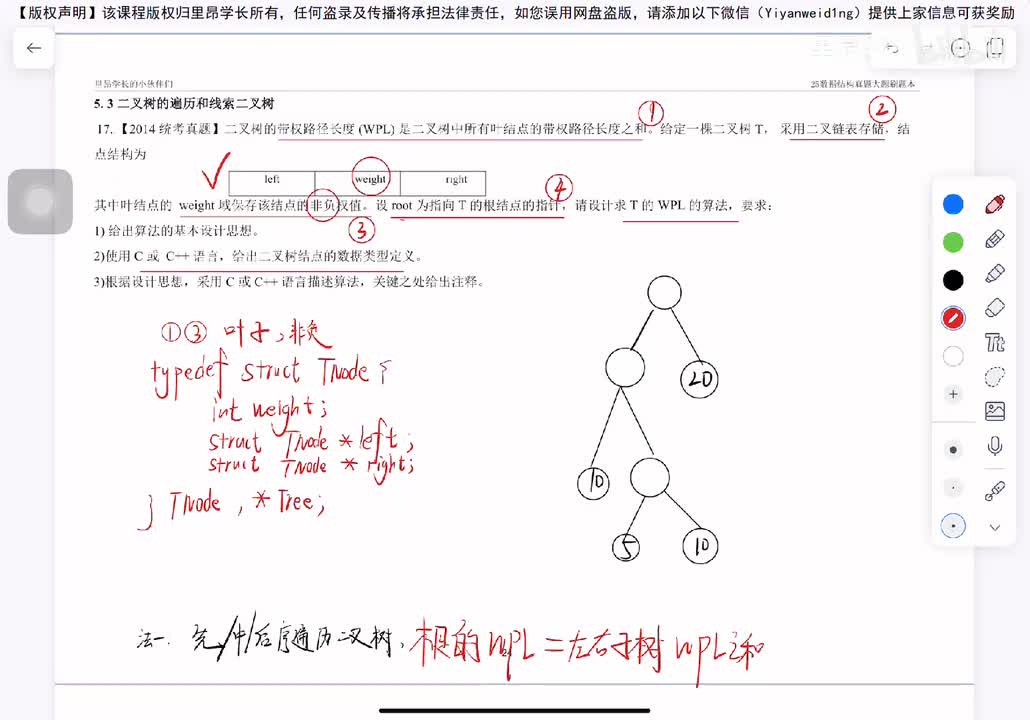 【版权声明】该课程版权归里昂学长所有，任何盗录及传播将承担法律责任，如您误用网盘盗版，请添加以下微信（Yiyanweid1ng）提供上家信息可获奖励
里昂学长的小伙伴们
25数据结构真题大题刷题本
5.3 二叉树的遍历和线索二叉树
① ②
17.【2014 统考真题】二叉树的带权路径长度 (WPL) 是二叉树中所有叶结点的带权路径长度之和。给定一棵二叉树 T， 采用二叉链表存储，结
点结构为
left weight right
④
其中叶结点的 weight 域保存该结点的非负权值。设 root 为指向 T 的根结点的指针，请设计求 T 的 WPL 的算法，要求：
③
1) 给出算法的基本设计思想。
2)使用 C 或 C++ 语言，给出二叉树结点的数据类型定义。
3)根据设计思想，采用 C 或 C++ 语言描述算法，关键之处给出注释。
①③ 叶子，非负
typedef struct TNode {
int weight;
struct TNode * left;
struct TNode * right;
} TNode , * Tree;
20
10
5 10
法一. 先/中/后序遍历二叉树，根的 WPL = 左右子树 WPL之和
Tt